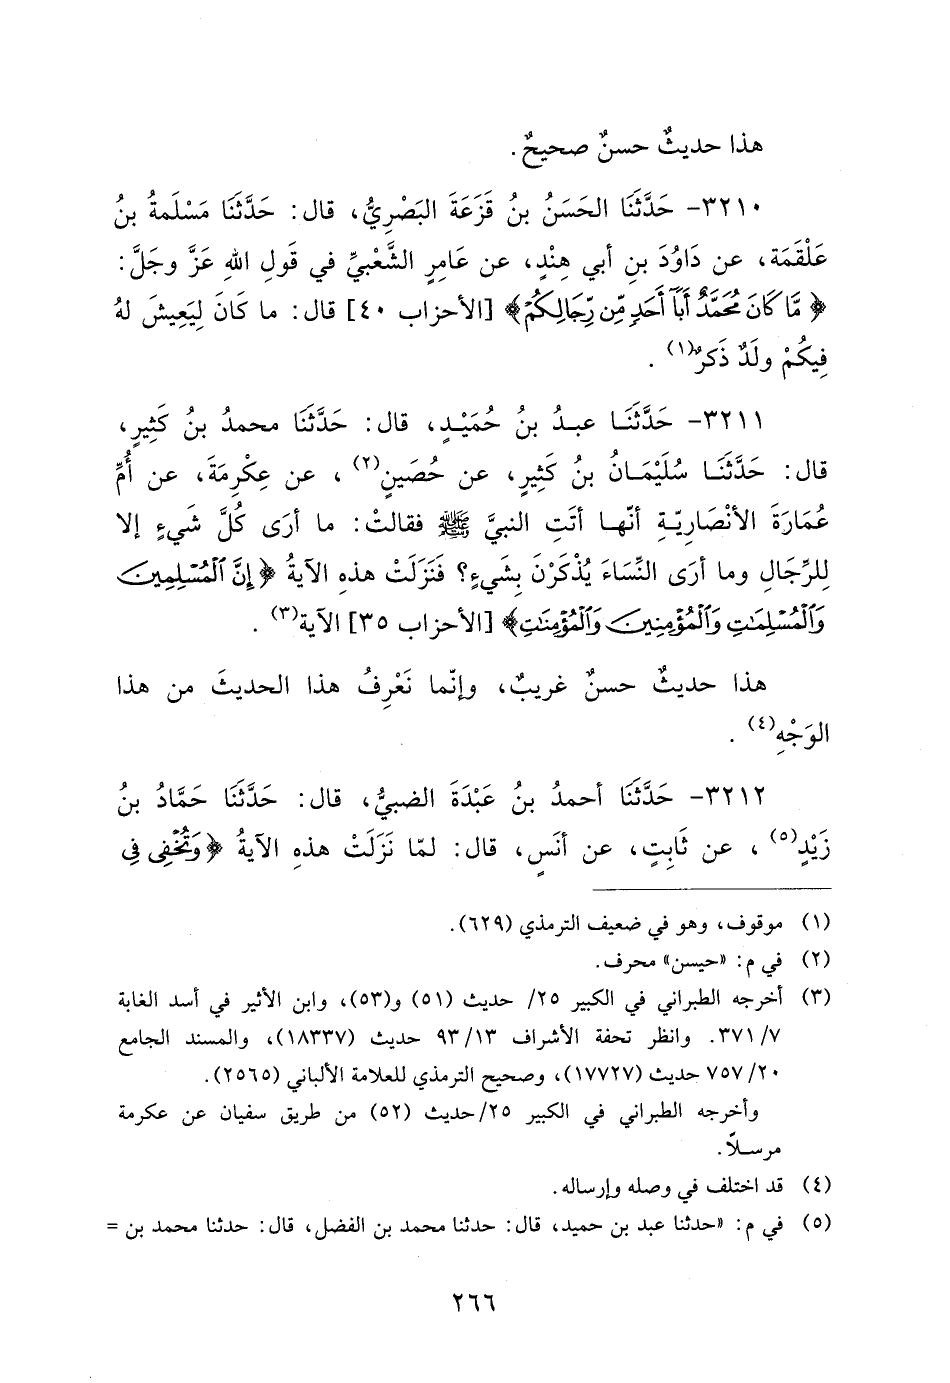 هذا حديثٌ حسنٌ صحيحٌ.
٣٢١٠- حَدَّثَنَا الحَسَنُ بنُ قَزَعَةَ البَصْرِيُّ، قال: حَدَّثَنَا مَسْلَمةُ بنُ
عَلْقَمَة، عن دَاوُدَ بنِ أبي هِنْدٍ، عن عَامِرٍ الشَّعْبيِّ في قَولِ اللهِ عَزَّ وجَلَّ:
﴿ مَّا كَانَ مُحَمَّدٌ أَبَآ أَحَدٍ مِّن رِّجَالِكُمْ﴾ [الأحزاب ٤٠] قال: ما كَانَ لِيَعِيشَ لهُ
فِيكُمْ ولَدٌ ذَكرٌ(١) .
٣٢١١- حَدَّثَنَا عبدُ بنُ حُمَيْدٍ، قال: حَدَّثَنَا محمدُ بنُ كَثِيرٍ،
قال: حَدَّثَنَا سُلَيْمَانُ بنُ كَثِيرٍ، عن حُصَينٍ(٢) ، عن عِكْرِمَةَ، عن أُمِّ
عُمَارَةَ الأنْصَاريّةِ أنّها أتَتِ النبيَّ ﷺ فقالتْ: ما أرَى كُلَّ شَيءٍ إلا
لِلرِّجَالِ وما أرَى النِّسَاءَ يُذْكَرْنَ بِشَيءٍ؟ فَنَزَلَتْ هذهِ الآيةُ ﴿ إِنَّ ٱلْمُسْلِمِينَ
وَٱلْمُسْلِمَٰتِ وَٱلْمُؤْمِنِينَ وَٱلْمُؤْمِنَٰتِ﴾ [الأحزاب ٣٥] الآية(٣) .
هذا حديثٌ حسنٌ غريبٌ، وإنّما نَعْرِفُ هذا الحديثَ من هذا
الوَجْهِ(٤) .
٣٢١٢- حَدَّثَنَا أحمدُ بنُ عَبْدَةَ الضبيُّ، قال: حَدَّثَنَا حَمَّادُ بنُ
زَيْدٍ(٥) ، عن ثَابِتٍ، عن أنَسٍ، قال: لمّا نَزَلَتْ هذهِ الآيةُ ﴿ وَتُخْفِى فِى
(١) موقوف، وهو في ضعيف الترمذي (٦٢٩).
(٢) في م: «حيسن» محرف.
(٣) أخرجه الطبراني في الكبير ٢٥/ حديث (٥١) و(٥٣)، وابن الأثير في أسد الغابة
٣٧١/٧. وانظر تحفة الأشراف ٩٣/١٣ حديث (١٨٣٣٧)، والمسند الجامع
٧٥٧/٢٠ حديث (١٧٧٢٧)، وصحيح الترمذي للعلامة الألباني (٢٥٦٥).
وأخرجه الطبراني في الكبير ٢٥/حديث (٥٢) من طريق سفيان عن عكرمة
مرسلاً.
(٤) قد اختلف في وصله وإرساله.
(٥) في م: «حدثنا عبد بن حميد، قال: حدثنا محمد بن الفضل، قال: حدثنا محمد بن =
٢٦٦